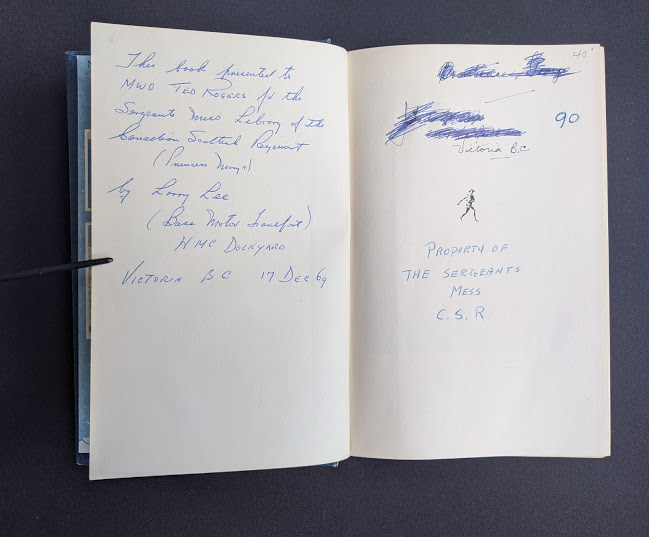 This book presented to
MWO TED ROGERS for the
Sergeants Mess Library of the
Canadian Scottish Regiment
(Princess Mary's)
by Larry Lee
(Base Motor Transport)
HMC DOCKYARD
VICTORIA BC 17 DEC 69
40
90
Victoria B,C
PROPERTY OF
THE SERGEANTS
MESS
C.S.R